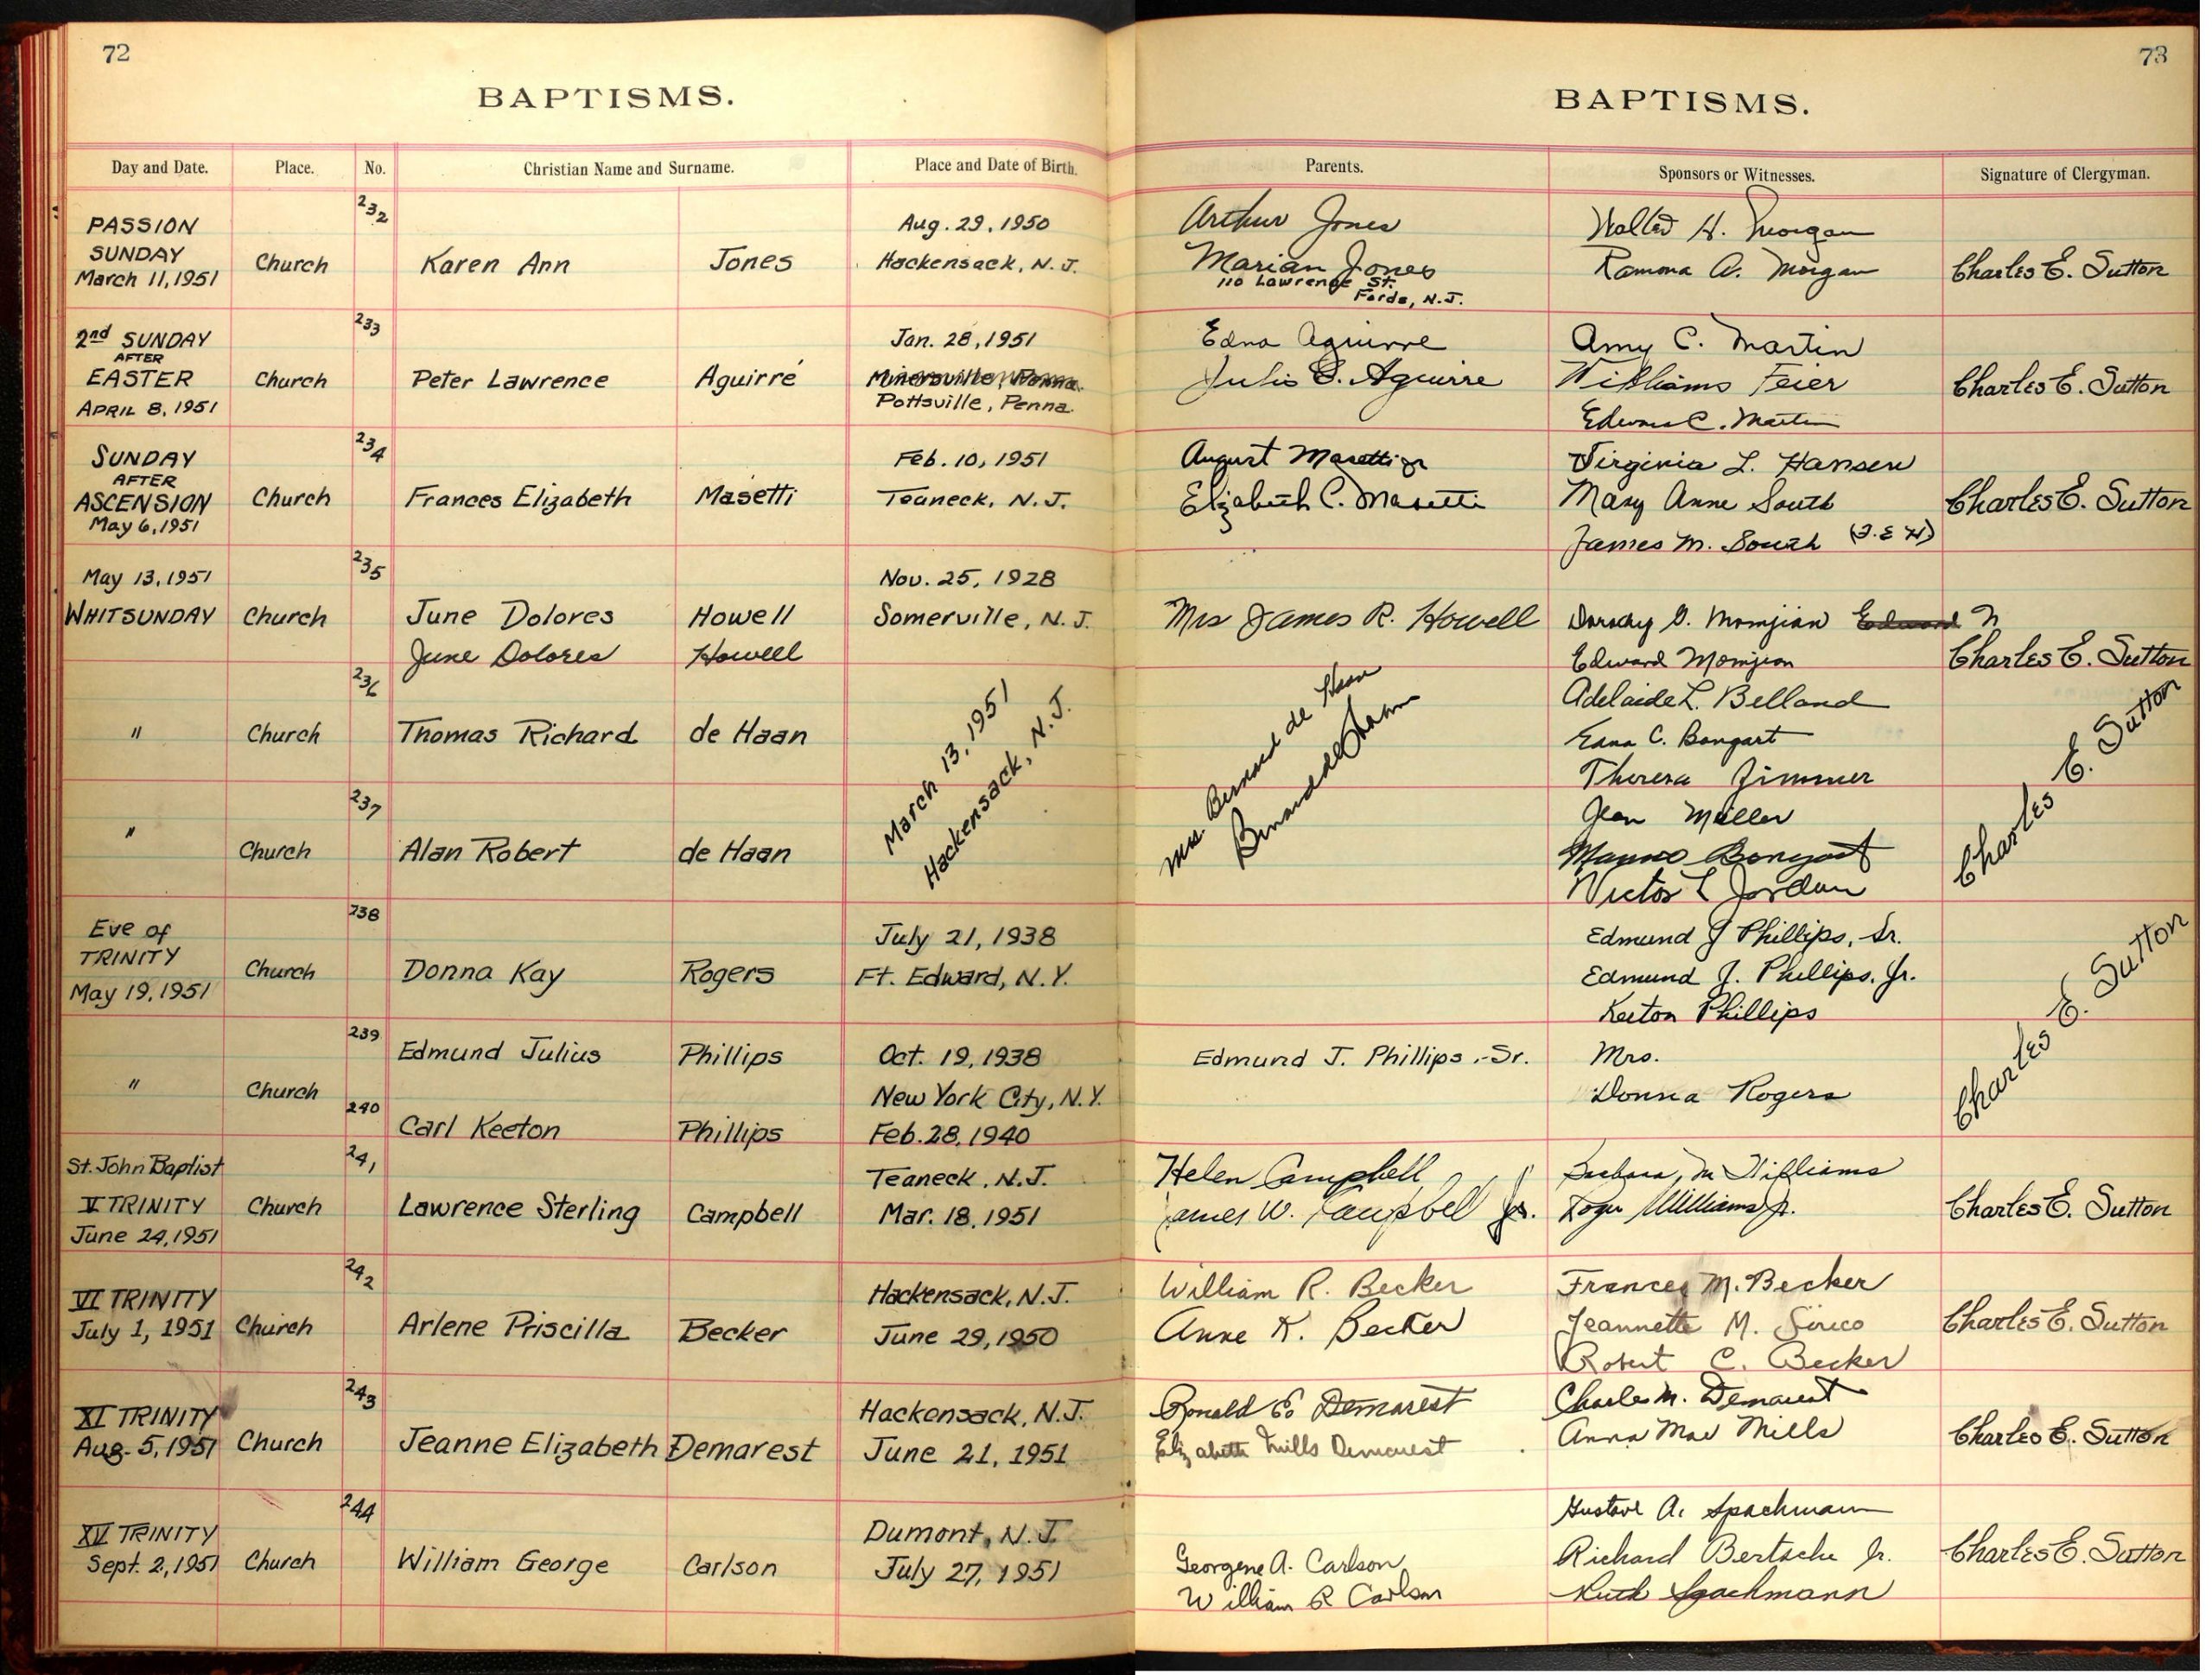 72
BAPTISMS.
Day and Date. Place. No. Christian Name and Surname. Place and Date of Birth.
232
PASSION
SUNDAY
March 11, 1951
Church
Karen Ann Jones
Aug. 29, 1950
Hackensack, N.J.
233
2nd SUNDAY
AFTER
EASTER
APRIL 8, 1951
Church
Peter Lawrence Aguirré
Jan. 28, 1951
Minersville, Penna.
Pottsville, Penna.
234
SUNDAY
AFTER
ASCENSION
May 6, 1951
Church
Frances Elizabeth Masetti
Feb. 10, 1951
Teaneck, N.J.
235
May 13, 1951
WHITSUNDAY
Church
June Dolores Howell
June Dolores Howell
Nov. 25, 1928
Somerville, N.J.
236
" Church
Thomas Richard de Haan
March 13, 1951
Hackensack, N.J.
237
" Church
Alan Robert de Haan
238
Eve of
TRINITY
May 19, 1951
Church
Donna Kay Rogers
July 21, 1938
Ft. Edward, N.Y.
239
" Church
Edmund Julius Phillips
Oct. 19, 1938
New York City, N.Y.
240
Carl Keeton Phillips
Feb. 28, 1940
241
St. John Baptist
V TRINITY
June 24, 1951
Church
Lawrence Sterling Campbell
Teaneck, N.J.
Mar. 18, 1951
242
VI TRINITY
July 1, 1951
Church
Arlene Priscilla Becker
Hackensack, N.J.
June 29, 1950
243
XI TRINITY
Aug. 5, 1951
Church
Jeanne Elizabeth Demarest
Hackensack, N.J.
June 21, 1951
244
XV TRINITY
Sept. 2, 1951
Church
William George Carlson
Dumont, N.J.
July 27, 1951
73
BAPTISMS.
Parents. Sponsors or Witnesses. Signature of Clergyman.
Arthur Jones
Marian Jones
110 Lawrence St.
Fords, N.J.
Walter H. Morgan
Ramona A. Morgan
Charles E. Sutton
Edna Aguirre
Julio E. Aguirre
Amy C. Martin
Williams Feier
Edward C. Martin
Charles E. Sutton
August Masetti Jr
Elizabeth C. Masetti
Virginia L. Hansen
Mary Anne South
James M. South
Charles E. Sutton
Mrs James R. Howell
Dorothy G. Momjian Edward N
Edward Momjian
Charles E. Sutton
Mrs. Bernard de Haan
Bernard de Haan
Adelaide L. Belland
Edna C. Bongart
Theresa Zimmer
Jean Miller
Bongart
Victor L Jordan
Charles E. Sutton
Edmund J Phillips, Sr.
Edmund J. Phillips, Jr.
Keeton Phillips
Charles E. Sutton
Edmund J. Phillips, Sr.
Mrs.
Donna Rogers
Helen Campbell
James W. Campbell Jr.
Barbara M Williams
Roger Williams Jr.
Charles E. Sutton
William R. Becker
Anne K. Becker
Frances M. Becker
Jeannette M. Sirico
Robert C. Becker
Charles E. Sutton
Ronald E. Demarest
Elizabeth Mills Demarest
Charles M. Demarest
Anna Mae Mills
Charles E. Sutton
Georgene A. Carlson
William R Carlson
Gustave A. Spachmann
Richard Bertsche Jr.
Ruth Spachmann
Charles E. Sutton